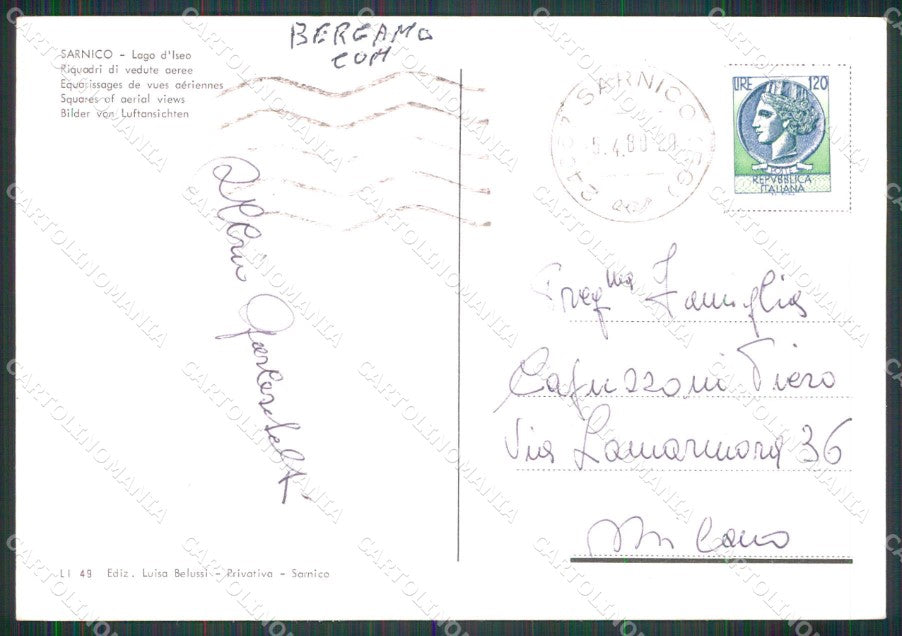 BERGAMO
COM
SARNICO - Lago d'Iseo
Riquadri di vedute aeree
Equarissages de vues aériennes
Squares of aerial views
Bilder von Luftansichten
SARNICO
5.4.80-20
LIRE 120
REPVBBLICA
ITALIANA
Preg.ma Famiglia
Capuzzoni Piero
Via Lamarmora 36
Milano
LI 49 Ediz. Luisa Belussi - Privativa - Sarnico
CARTOLINOMANIA